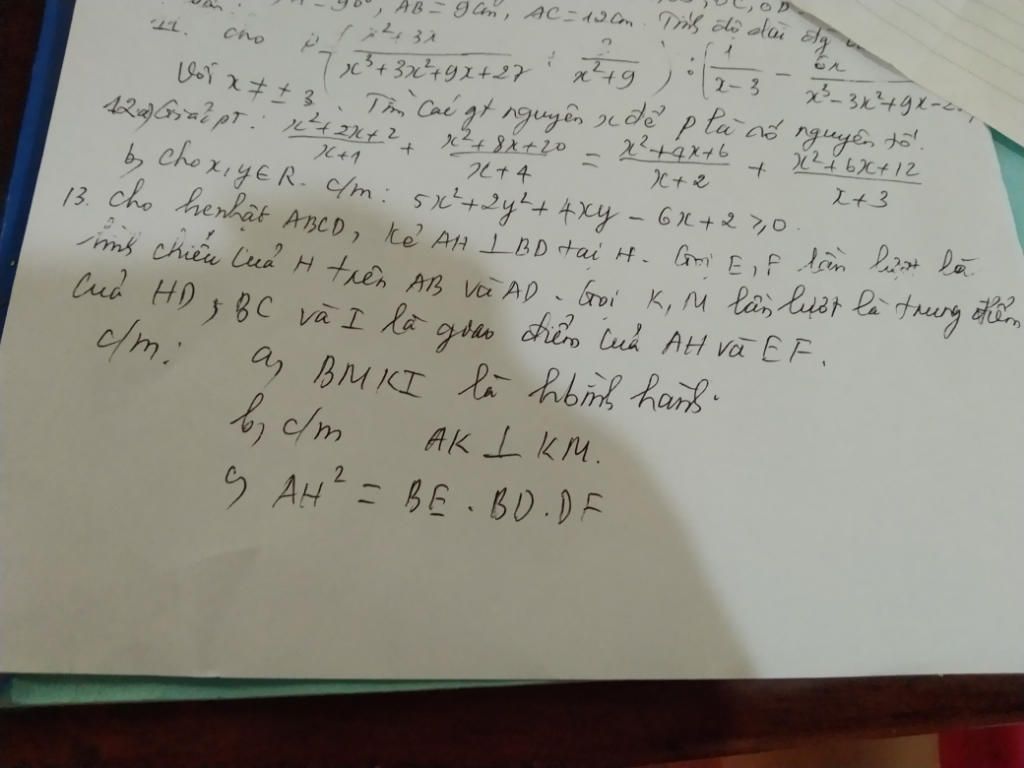 = 90°, AB = 9cm, AC = 12cm. Tính độ dài
11. Cho P = ( x²+3x / x³+3x²+9x+27 + / x²+9 ) : ( 1 / x-3 - 6x / x³-3x²+9x-2
Với x ≠ ± 3. Tìm các gt nguyên x để P là số nguyên tố.
12. a) Giải pT: x²+2x+2 / x+1 + x²+8x+20 / x+4 = x²+4x+6 / x+2 + x²+6x+12 / x+3
b, Cho x, y ∈ R. c/m: 5x²+2y²+4xy - 6x+2 ⩾ 0.
13. Cho hcnhật ABCD, kẻ AH ⊥ BD tại H. Gọi E, F lần lượt là
hình chiếu của H trên AB và AD. Gọi K, M lần lượt là trung điểm
của HD, BC và I là giao điểm của AH và EF.
c/m: a, BMKI là hbình hành.
b, c/m AK ⊥ KM.
c, AH² = BE . BD . DF